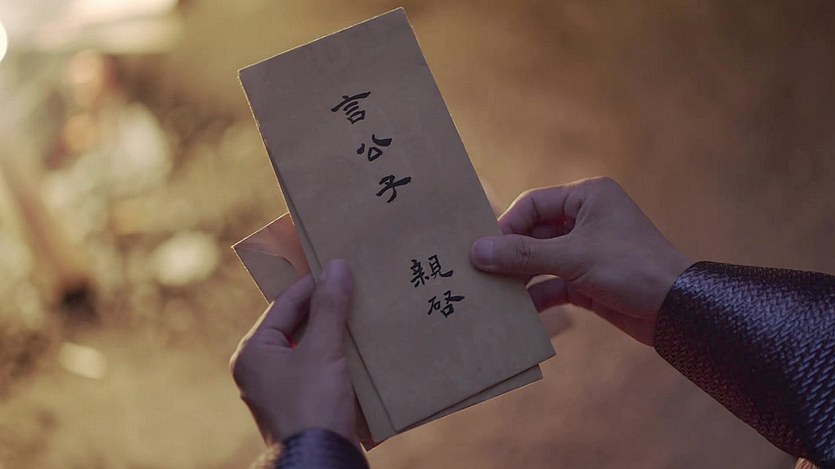 言公子 親啓